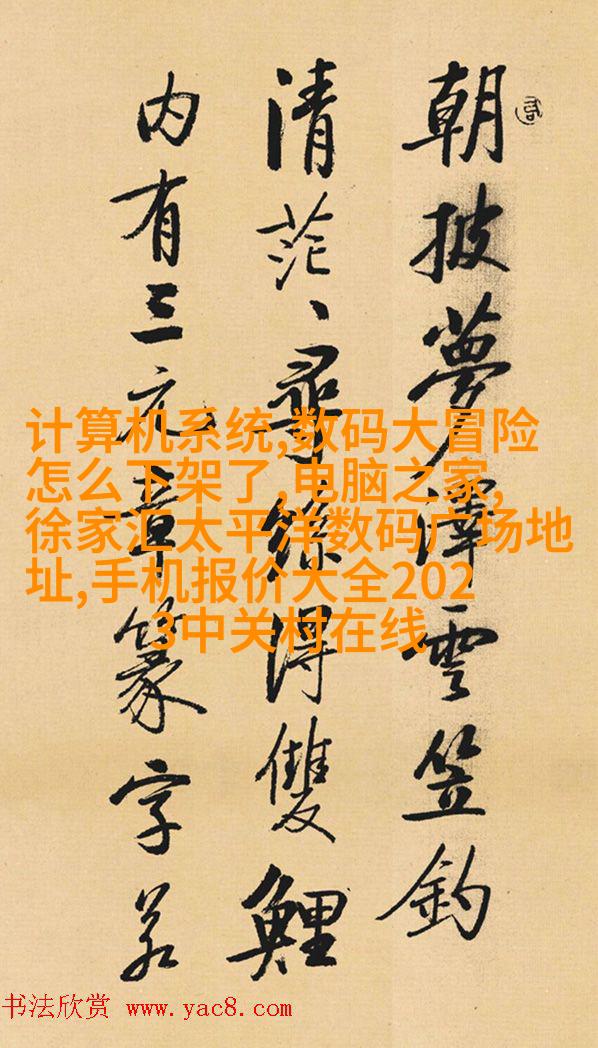 朝披夢澤雲笠釣
清茫、尋絲得雙鯉
内有三元章篆字若
计算机系统,数码大冒险
怎么下架了,电脑之家,
徐家汇太平洋数码广场地
址,手机报价大全202
3中关村在线
书法欣赏 www.yac8.com